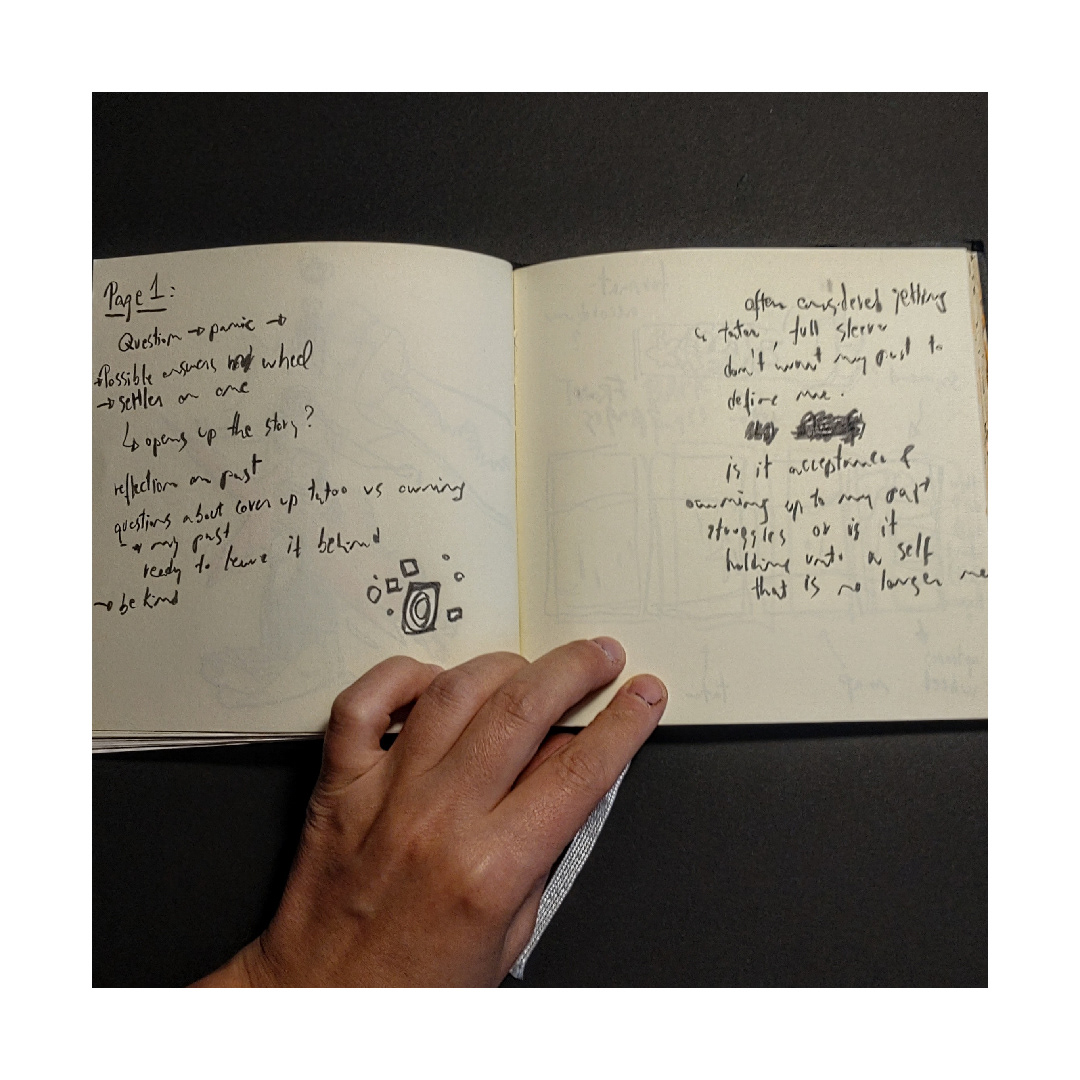 Page 1:
Question → panic →
→ Possible answers wheel
→ settles on one
↳ opens up the story?
reflection on past
questions about cover up tatoo vs owning
→ my past
ready to leave it behind
→ be kind
often considered getting
a tatoo, full sleeve
don't want my past to
define me.
is it acceptance &
owning up to my past
struggles or is it
holding unto a self
that is no longer me